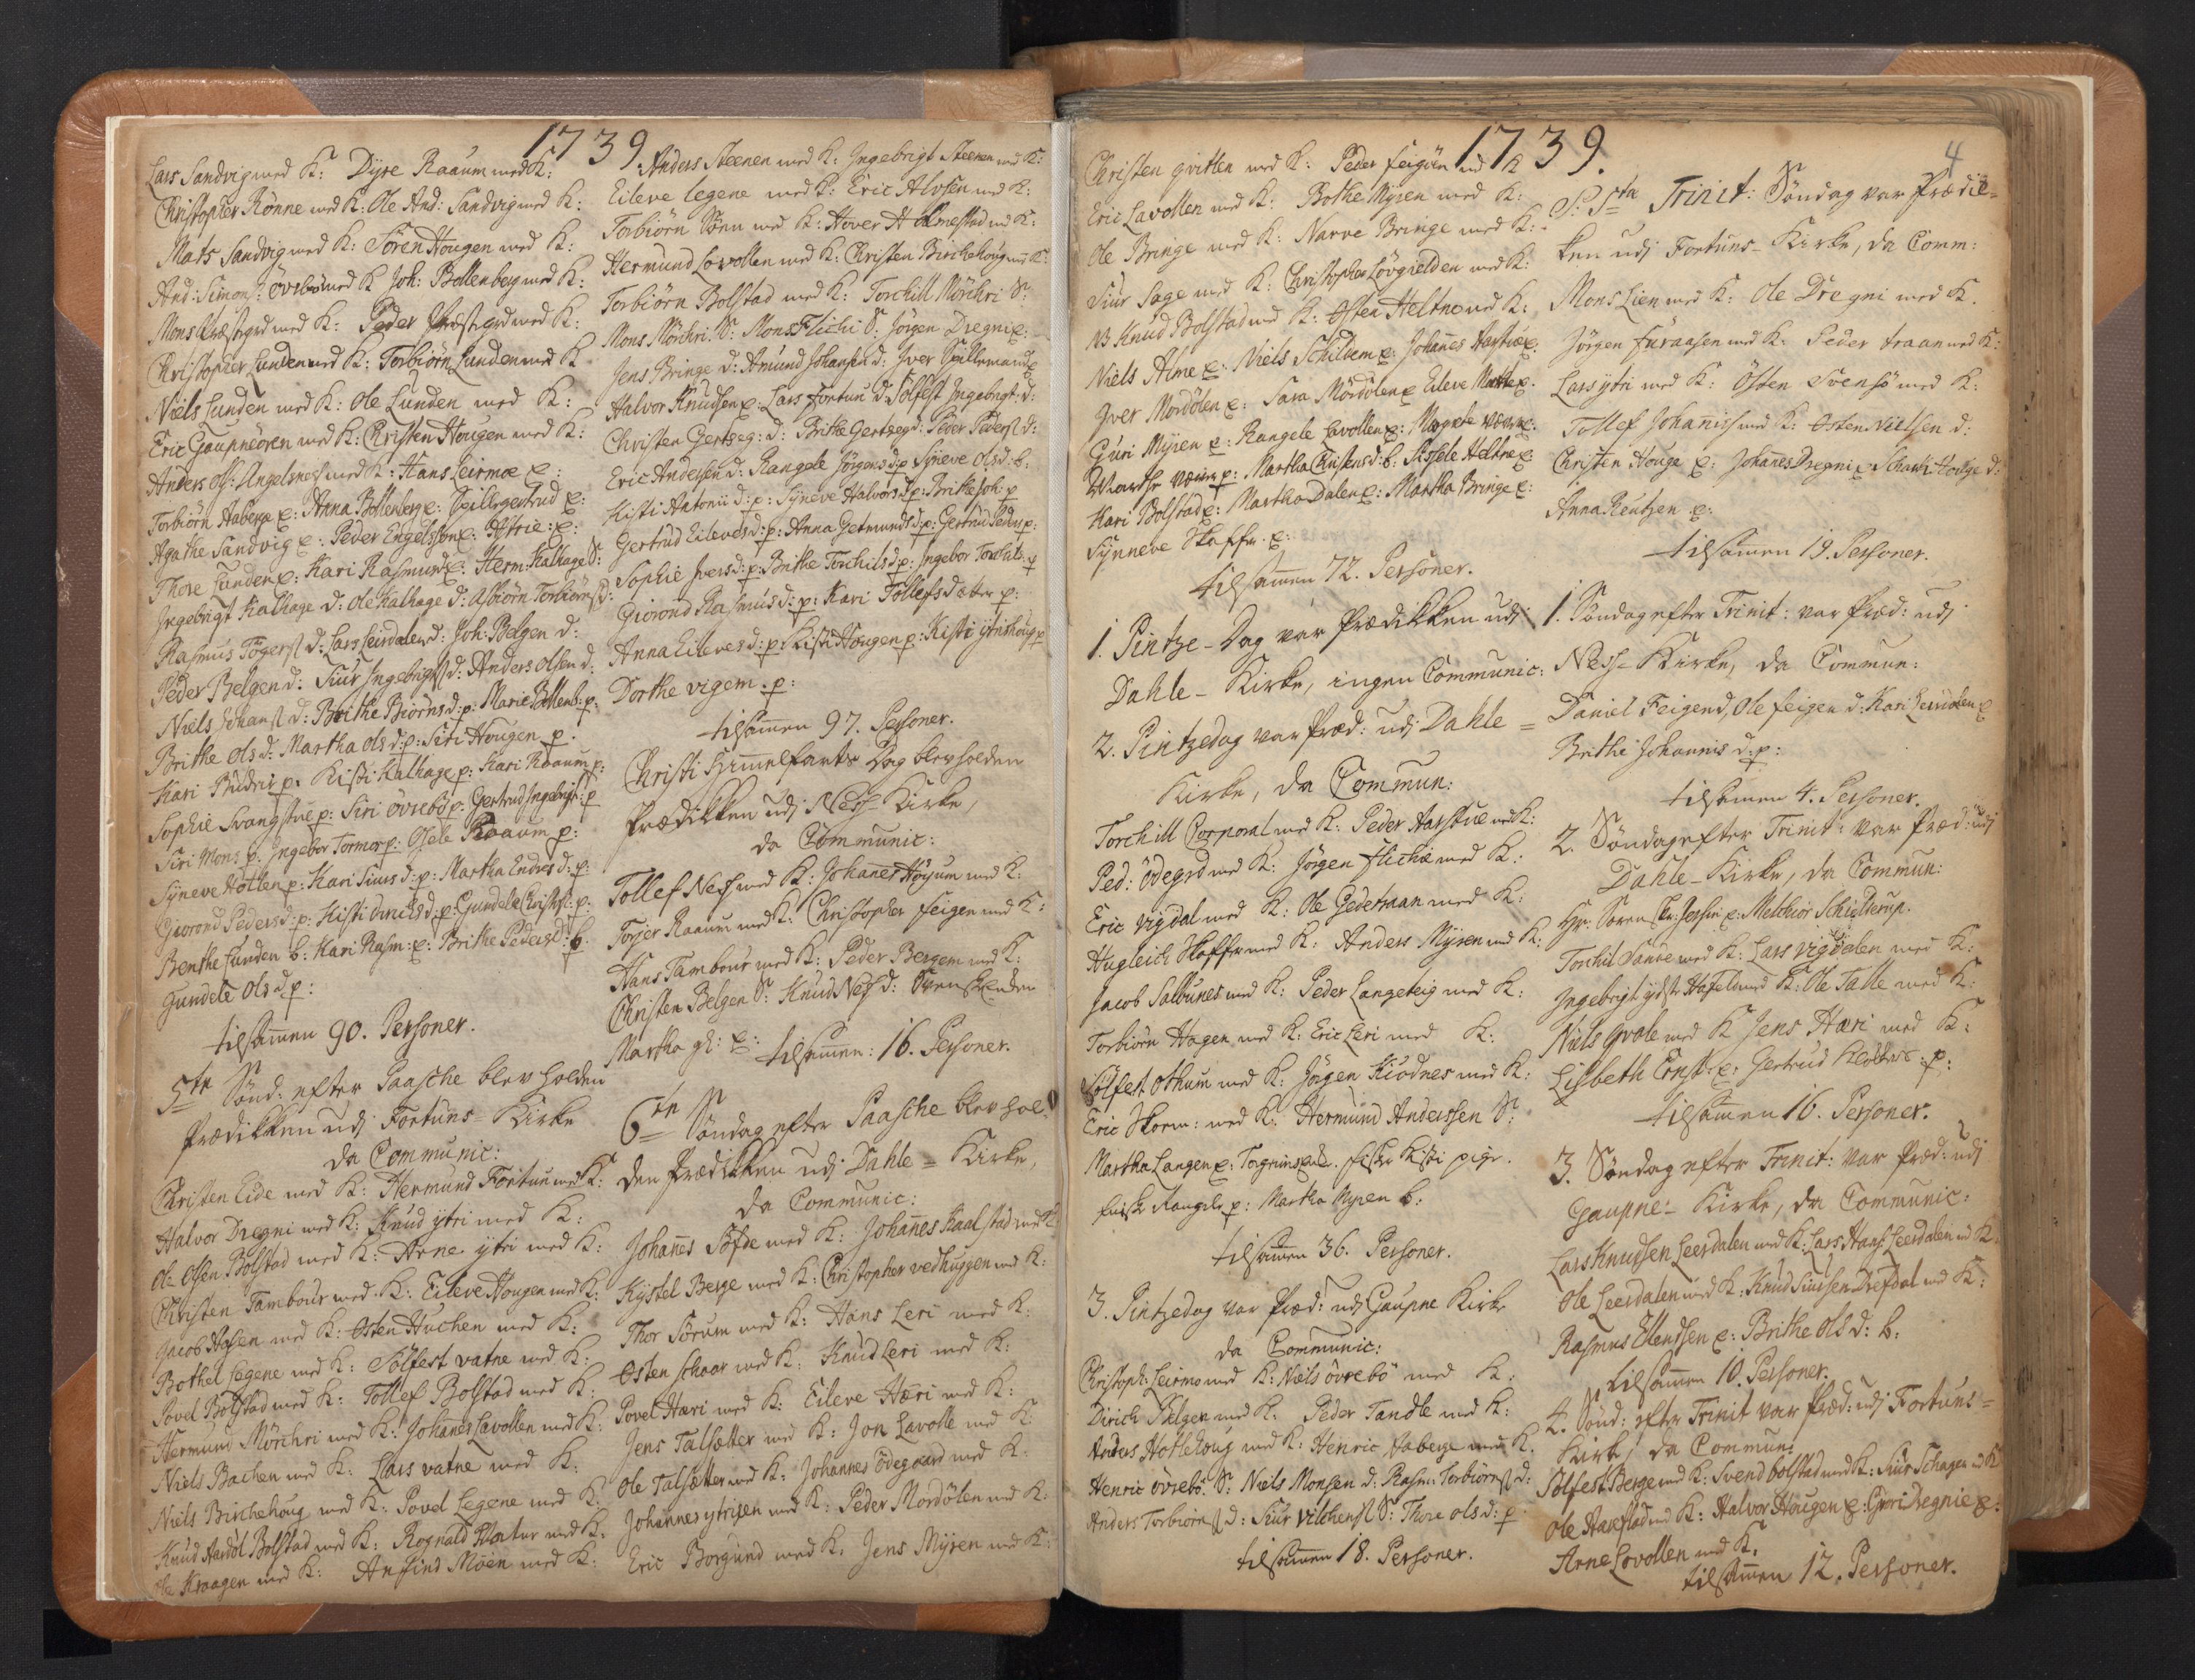 1739
Lars Sandvig med K: Dyre Raaum med K:
Christopher Rønne med K: Ole And: Sandvig med K:
Mats Sandvig med K: Søren Hougen med K:
And: Simons: øvrebø med K Joh: Bollenberg med K:
Mons Præstegrd med K: Peder Præstegrd med K:
Christopher Lunden med K: Torbiørn Lunden med K
Niels Lunden med K: Ole Lunden med K:
Eric Gaupneören med K: Christen Hougen med K:
Anders ols: Angelsnes med K: Hans Leirmoe E:
Torbiörn Aaberge E: Anna Bollenberg E: gertrud E:
Agathe Sandvig E: Peder Engelssøn E: E:
Thore Lunden E: Kari Rasmusd E: Herm: Kalhage S:
Ingebrigt Kalhage d: Ole Kalhage d: Asbiörn Torbiörns d:
Rasmus Togers d: Lars Leirdalen d: Joh: Belgen d:
Peder Belgen d: Siur Ingebrigts d: Anders Olsen d:
Niels Johans d: Brithe Biörnsd: p: Marie Bollenb: p:
Brithe Ols d: Martha Ols d: p: Siri Hougen p:
Kari p: Kisti Kalhage p: Kari Raaum p:
Sophie Svangstue p: Siri övrebö p: Gertrud Ingebrigt: p
Siri Mons p: Ingebor Tormor p: Osele Raaum p:
Syneve Hollen p: Kari Siursd: p: Martha Endresd: p:
Giorond Pedersd: p: Kisti d: p: Gundele Christs: p:
Benthe Lunden b: Kari Rasm: E: Brithe Pedersd: b.
Gundele Ols d p:
tilsamen 90. Personer.
5te Sønd: efter Paasche blev holden
Prædikken udj Fortuns-Kirke
da Communic:
Christen Eide med K: Hermund Fortun med K:
Halvor Dregni med K: Knud ytri med K:
Ole Olsen Bolstad med K: Arne ytri med K:
Christen Tambour med K: Eileve Hougen med K:
Jacob Aasen med K: Østen Huchen med K:
Bothel Legene med K: Sølfest vatne med K:
Povel Bolstad med K: Tollef Bolstad med K:
Hermund Mörchri med K: Johanes Lavollen med K:
Niels Bachen med K: Lars vatne med K:
Niels Birchehoug med K: Povel Legene med K:
Knud Bolstad med K: Rognald med K:
Ole Kraagen med K: Anfind Moen med K:
Anders Steenen med K: Ingebrigt Steenen med K:
Eileve Legene med K: Eric Alvsen med K:
Torbiörn med K: Hover Holmestad med K:
Hermund Lavollen med K: Christen Birchehoug med K:
Torbiörn Bolstad med K: Torchill Mörchri S:
Mons Mörchri S: Mons Flichi S: Jörgen Dregni E:
Jens Bringe d: Amund Johansen d: Iver Spillemand E
Halvor Knudsen E: Lars fortun d: Sølfest Ingebrigt: d:
Christen Gertseg: d: Brithe Gertseg d: Peder Peders: d:
Eric Andersen d: Rangele Jörgensd: p Syneve Ols d: b:
Kisti Antonii d: p: Syneve Halvorsd p: Brithe Joh: p
Gertrud Eilevesd: p: Anna Getmundsd p: Gertrud Peders p:
Sophie Ivers d: p: Brithe Torchilsd p: Ingebor Torchils: p
Giorond Rasmus d: p: Kari Tollefsdatter p:
Anna Eileves d: p: Kisti Hougen p: Kisti p
Dorthe vigem p:
tilsamen 97. Personer.
Christi Himmelfarts Dag blev holden
Prædikken udj Ness-Kirke,
da Communic:
Tollef Ness med K: Johanes Höyum med K:
Torjer Raaum med K: Christopher feigen med K:
Hans Tambour med K: Peder Bergem med K:
Christen Belgen S: Knud Ness d:
Martha E: tilsamen: 16. Personer.
6te Søndag efter Paasche blev hol-
den Prædikken udj Dahle-Kirke,
da Communic:
Johanes Söfde med K: Johanes Kaalstad med K:
Kystel Berge med K: Christopher vedhuggen med K:
Thor Sörum med K: Hans Leri med K:
Østen Schaar med K: Knud Leri med K:
Povel Hæri med K: Eileve Hæri med K:
Jens Talsætter med K: Jon Lavolle med K:
Ole Talsætter med K: Johannes Ödegaard med K:
Johannes med K: Peder Mordölen med K:
Eric Borgund med K: Jens Myren med K:
1739.
4
Christen qvitlen med K: Peder feigen med K
Eric Lavollen med K: Bothe Myren med K:
Ole Bringe med K: Narve Bringe med K:
Siur Sage med K: Christopher Lövgielden med K:
NB Knud Bolstad med K: Østen Heltne med K:
Niels Alme E: Niels Schildem E: Johanes Harstue E:
Iver Mordölen E: Sara Mordölen E Eileve E:
Guri Myren E: Rangele Lavollen E: E:
Marthe p: Martha Christensd: b: Sissele Heltne E:
Kari Bolstad E: Martha Dalen E: Martha Bringe E:
Synneve Skaffer. E:
tilsamen 72. Personer.
1. Pintze-Dag var Prædikken udj
Dahle-Kirke, ingen Communic:
2. Pintzedag var Præd: udj Dahle-
Kirke, da Commun:
Torchill Corporal med K: Peder Harstue med K:
Ped: ödegrd med K: Jörgen Flichie med K:
Eric vigdal med K: Ole Gedetraan med K:
Hugleich Skaffer med K: Anders Myren med K:
Jacob Salbunes med K: Peder Langeteig med K:
Torbiörn Hagen med K: Eric Leri med K:
Sölfest Othum med K: Jörgen Kiödnes med K:
Eric Skorm: med K: Hermund Anderssen S:
Martha Langen E: Kisti pige.
Rangele p: Martha Myren b:
tilsamen 36. Personer.
3. Pintzedag var Præd: udj Gaupne Kirke
da Communic:
Christoph: Leirmo med K: Niels övrebö med K:
Dirich Belgen med K: Peder Tandle med K:
Anders Hollehoug med K: Henric Aaberge med K.
Henric övrebö S: Niels Monsen d: Rasm: Torbiörns d:
Anders Torbiörns d: Siur Vilchens S: Thore Ols d: p
tilsamen 18. Personer.
S: Sta Trinit: Søndag var Prædic-
ken udj Fortuns-Kirke, da Comm:
Mons Lien med K: Ole Dregni med K.
Jörgen furaasen med K: Peder traan med K:
Lars ytri med K: Östen Svensö med K:
Tollef Johanis med K: Østen Nielsen d:
Christen Houge E: Johanes Dregni E d:
Anna Reutzen E:
tilsamen 19. Personer.
1. Søndag efter Trinit: var Præd: udj
Ness-Kirke, da Commun:
Daniel Feigen d, Ole feigen d: Kari Leirdalen E
Brithe Johannis d: p:
tilsamen 4. Personer.
2. Søndag efter Trinit: var Præd: udj
Dahle-Kirke, da Commun:
Hr. Søren Jessen E: Melchior Schielderup.
Torchil Sande med K: Lars vigdalen med K:
Ingebrigt Hafeld med K: Ole Talle med K:
Niels Qvale med K Jens Hæri med K:
Lisbeth Ernst: E: Gertrud p:
tilsamen 16. Personer.
3. Søndag efter Trinit: var Præd: udj
Gaupne-Kirke, da Communic:
Lars Knudsen Leerdalen med K: Lars Hans: Leerdalen med K:
Ole Leerdalen med K: Knud Siursen Drefdal med K:
Rasmus Ellendsen E: Brithe Ols d: b:
tilsamen 10. Personer.
4. Sønd: efter Trinit var Præd: udj Fortuns-
Kirke, da Commun:
Sølfest Berge med K: Svend bolstad med K: Siur Schagen med K
Ole Haxestad med K: Halvor Hougen E: Guri Dregnie E:
Arne Lovollen med K.
tilsamen 12. Personer.